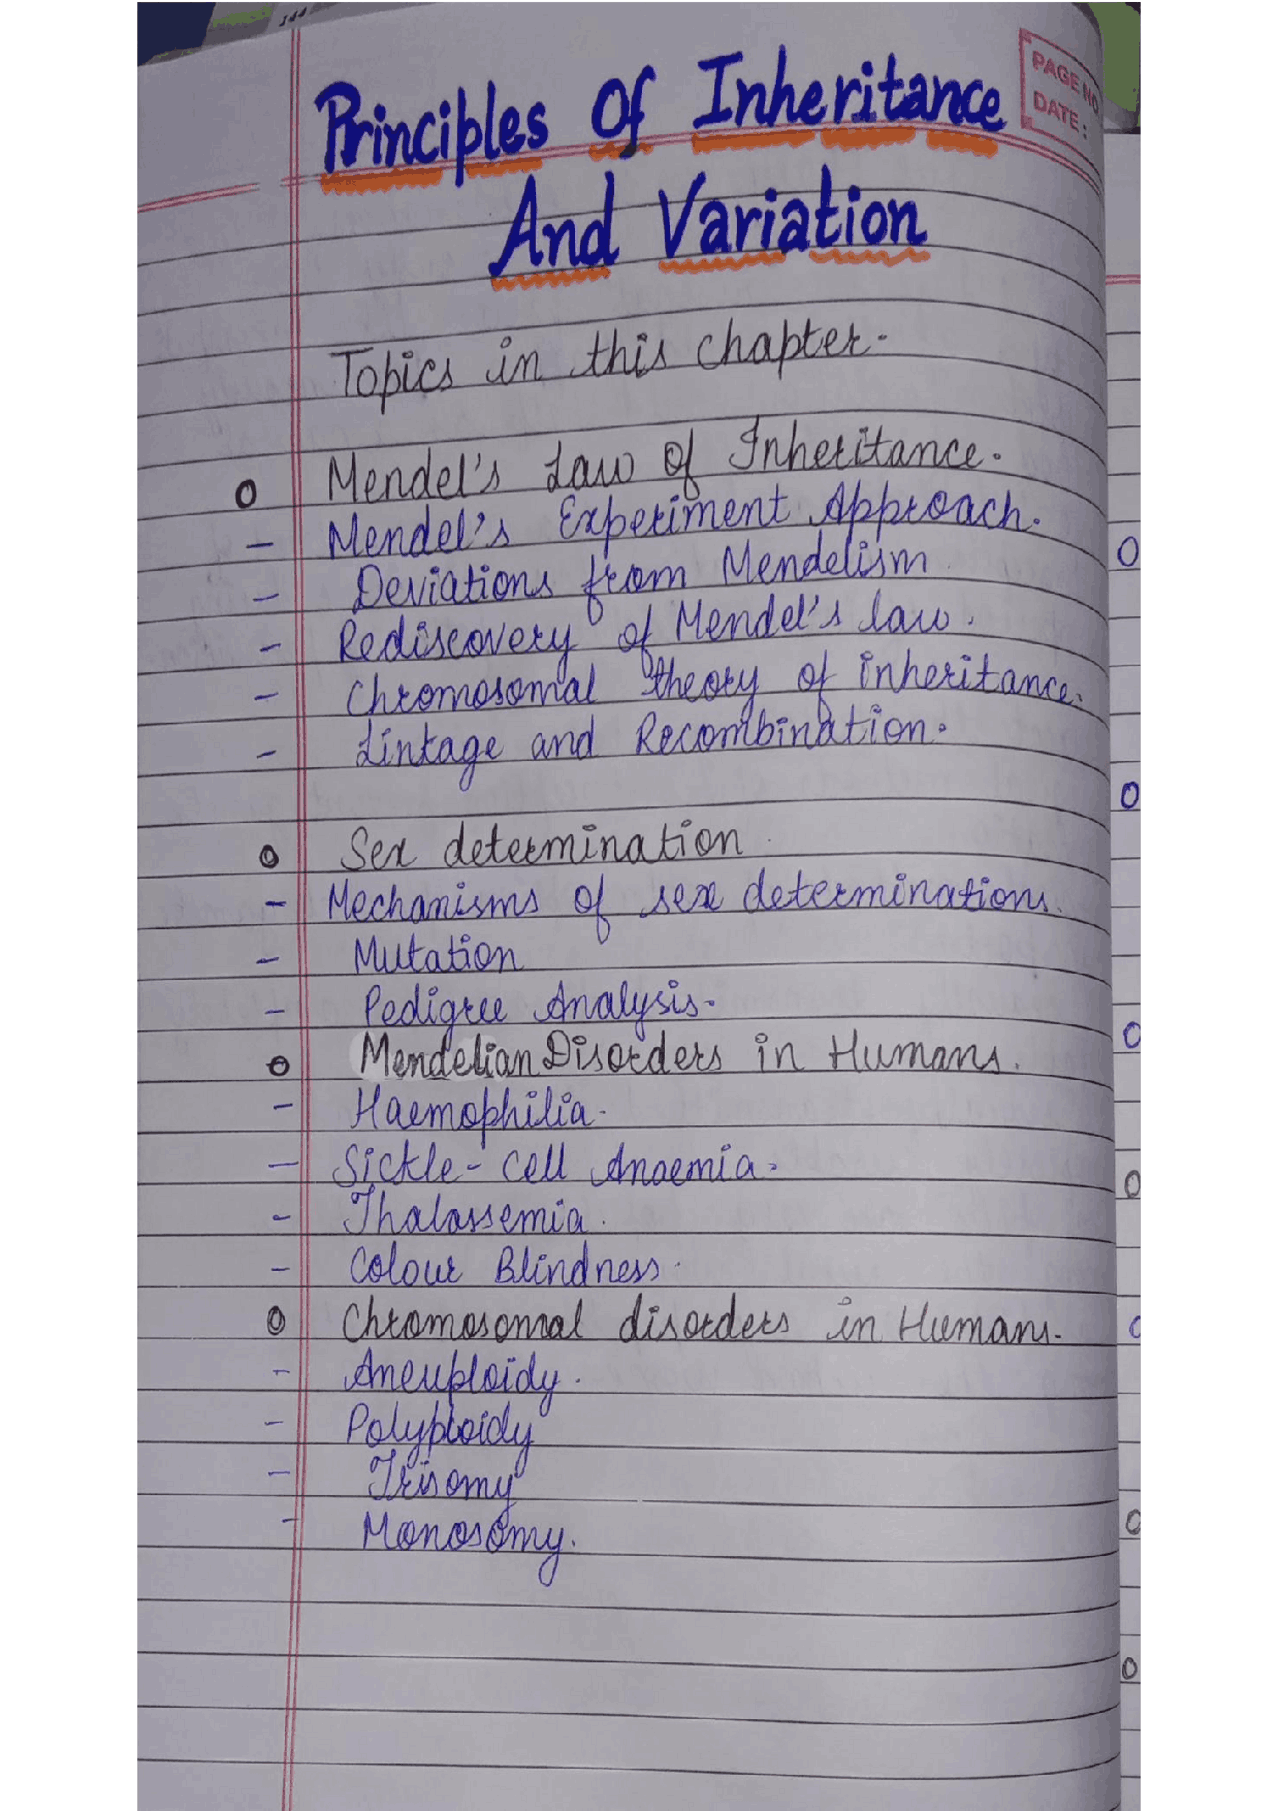 Principles Of Inheritance
PAGE NO
DATE:
And Variation
Topics in this chapter-
o Mendel's Law of Inheritance.
- Mendel's Experiment Approach.
- Deviations from Mendelism
- Rediscovery of Mendel's law.
- Chromosomal theory of inheritance.
- Linkage and Recombination.
o Sex determination.
- Mechanisms of sex determinations.
- Mutation
- Pedigree Analysis-
o Mendelian Disorders in Humans.
- Haemophilia-
- Sickle-cell Anaemia-
- Thalassemia.
- Colour Blindness-
o Chromosomal disorders in Humans-
- Aneuploidy.
- Polyploidy
- Trisomy
- Monosomy.